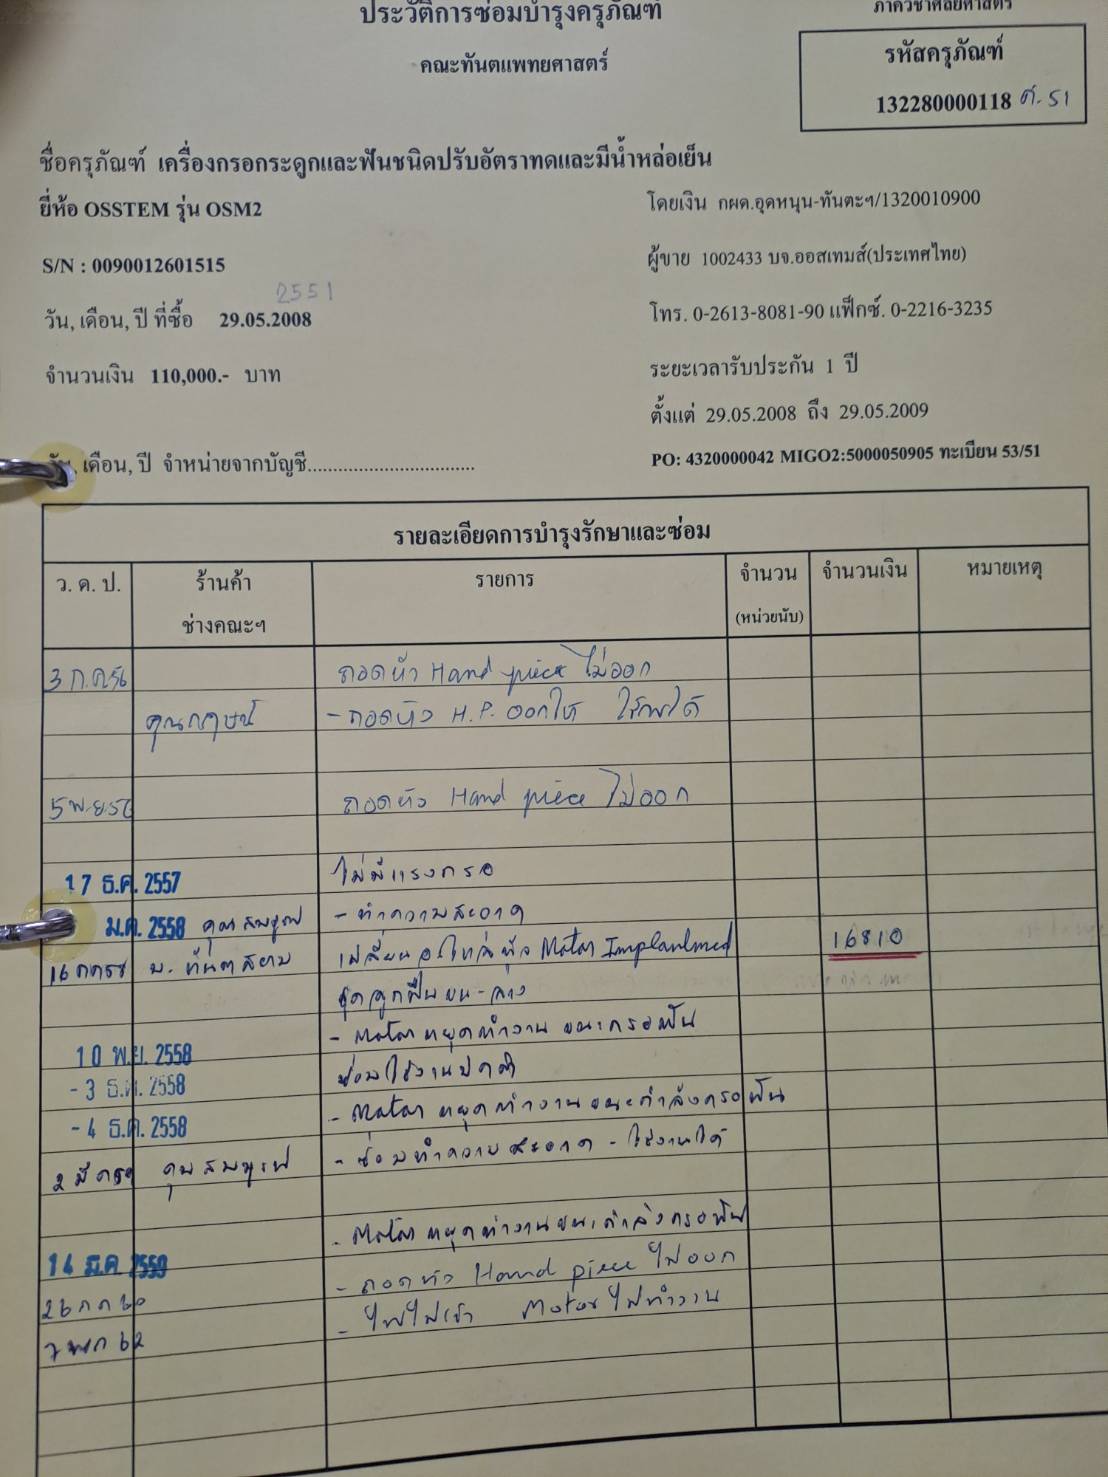 ประวัติการซ่อมบำรุงครุภัณฑ์
ภาควิชาศัลยศาสตร์
คณะทันตแพทยศาสตร์
รหัสครุภัณฑ์
132280000118 ศ.51
ชื่อครุภัณฑ์ เครื่องกรอกระดูกและฟันชนิดปรับอัตราทดและมีน้ำหล่อเย็น
ยี่ห้อ OSSTEM รุ่น OSM2
โดยเงิน กผด.อุดหนุน-ทันตะฯ/1320010900
S/N : 0090012601515
ผู้ขาย 1002433 บจ.ออสเทมส์(ประเทศไทย)
2551
วัน, เดือน, ปี ที่ซื้อ 29.05.2008
โทร. 0-2613-8081-90 แฟ็กซ์. 0-2216-3235
จำนวนเงิน 110,000.- บาท
ระยะเวลารับประกัน 1 ปี
ตั้งแต่ 29.05.2008 ถึง 29.05.2009
วัน, เดือน, ปี จำหน่ายจากบัญชี................................
PO: 4320000042 MIGO2:5000050905 ทะเบียน 53/51
รายละเอียดการบำรุงรักษาและซ่อม
ว. ด. ป. ร้านค้า รายการ จำนวน จำนวนเงิน หมายเหตุ
ช่างคณะฯ (หน่วยนับ)
3 ก.ค.56 ถอดหัว Hand piece ไม่ออก
- ถอดหัว H.P. ออกให้ ใช้งานได้
5 พ.ย.56 ถอดหัว Hand piece ไม่ออก
17 ธ.ค. 2557 ไม่มีแรงกรอ
ม.ค. 2558 คุณสมบูรณ์ - ทำความสะอาด
16 กค 58 บ. ทันตสยาม เปลี่ยนอะไหล่หัว Motor Implantmed 16810
ชุดลูกปืนบน-ล่าง
10 พ.ย. 2558 - Motor หยุดทำงาน ขณะกรอฟัน
- 3 ธ.ค. 2558 ซ่อมใช้งานปกติ
- 4 ธ.ค. 2558 - Motor หยุดทำงานขณะกำลังกรอฟัน
คุณสมบูรณ์ - ซ่อมทำความสะอาด - ใช้งานได้
14 มี.ค. 2559 - Motor หยุดทำงานขณะกำลังกรอฟัน
26 กค 60 - ถอดหัว Hand piece ไม่ออก
7 พค 62 - ไฟไม่เข้า Motor ไม่ทำงาน